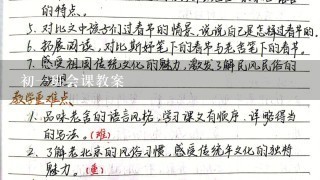 的特点。
5. 对比文中孩子们过春节的情景,说说自己是怎样过春节的。
6. 拓展阅读,对比斯妤笔下的春节与老舍笔下的春节。
7. 感受祖国传统文化的魅力,激发了解民风民俗的
教学重难点
1. 品味老舍的语言风格,学习课文有顺序、详略得当
的写法。(难)
2. 了解老北京的风俗习惯,感受传统年文化的独特
魅力。(重)